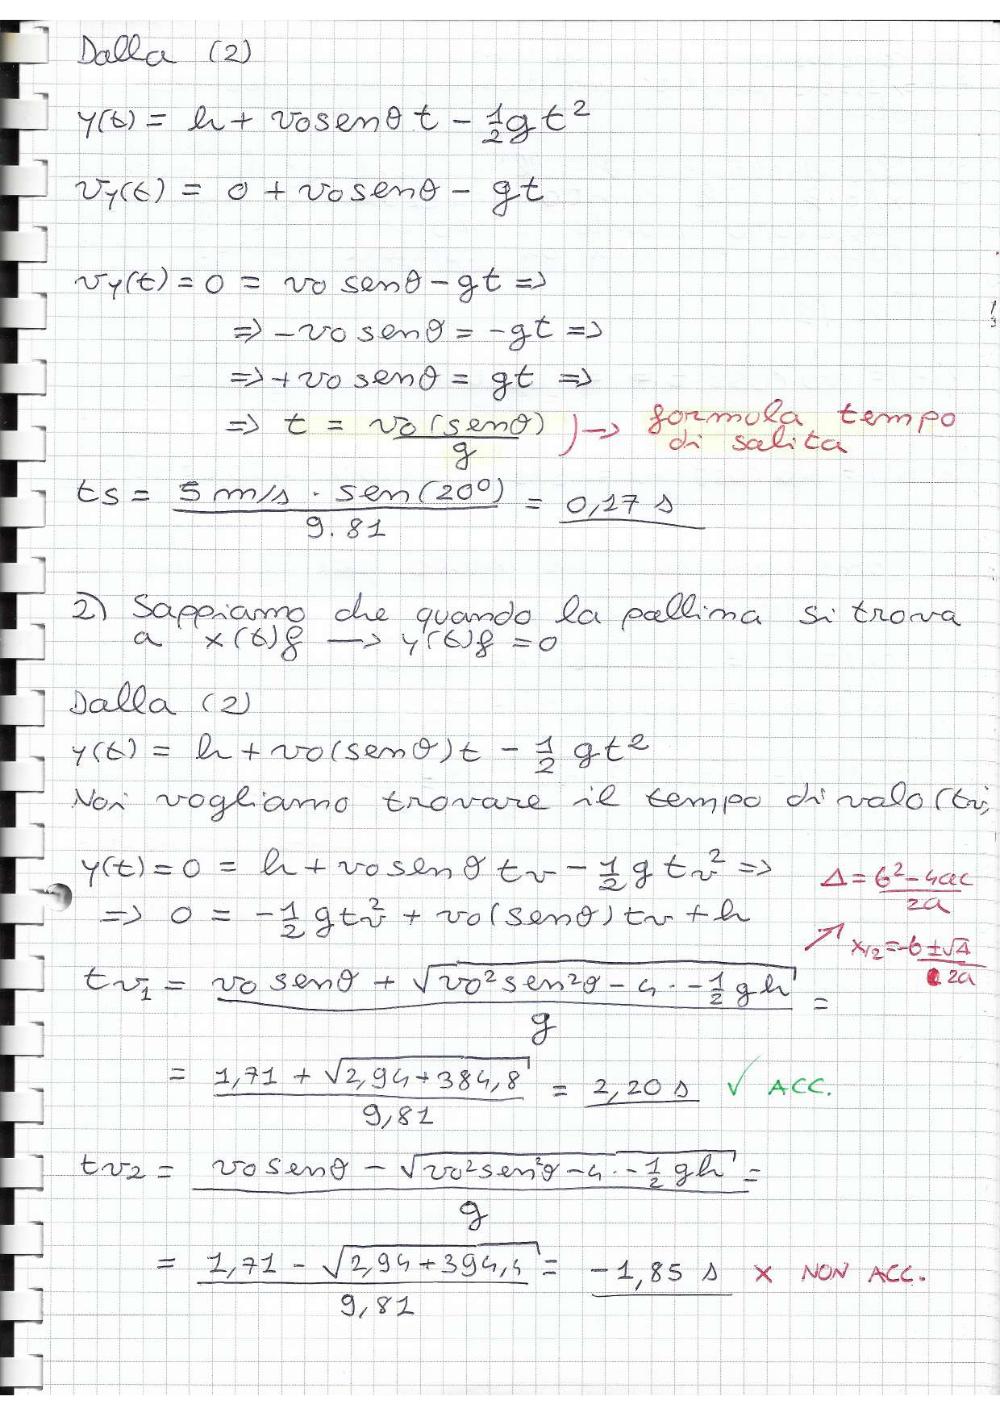 Dalla (2)
y(t) = h + vosenθ t - 1/2 gt²
vy(t) = 0 + vosenθ - gt
vy(t) = 0 = vo senθ - gt =>
=> -vo senθ = -gt =>
=> +vo senθ = gt =>
=> t = vo (senθ) / g ) -> formula tempo
di salita
ts = 5 m/s · sen(20°) / 9.81 = 0,17 s
2) Sappiamo che quando la pallina si trova
a x(t)f -> y(t)f = 0
Dalla (2)
y(t) = h + vo(senθ)t - 1/2 gt²
Noi vogliamo trovare il tempo di valo (tv)
y(t) = 0 = h + vo senθ tv - 1/2 g tv² =>
=> 0 = -1/2 gtv² + vo(senθ) tv + h
Δ = b² - 4ac / 2a
↗ x1/2 = -b ± √Δ / 2a
tv1 = vo senθ + √(vo² sen²θ - 4 · -1/2 gh) / g =
= 1,71 + √(2,94 + 384,8) / 9,81 = 2,20 s √ ACC.
tv2 = vo senθ - √(vo² sen²θ - 4 · -1/2 gh) / g =
= 1,71 - √(2,94 + 394,4) / 9,81 = -1,85 s x NON ACC.